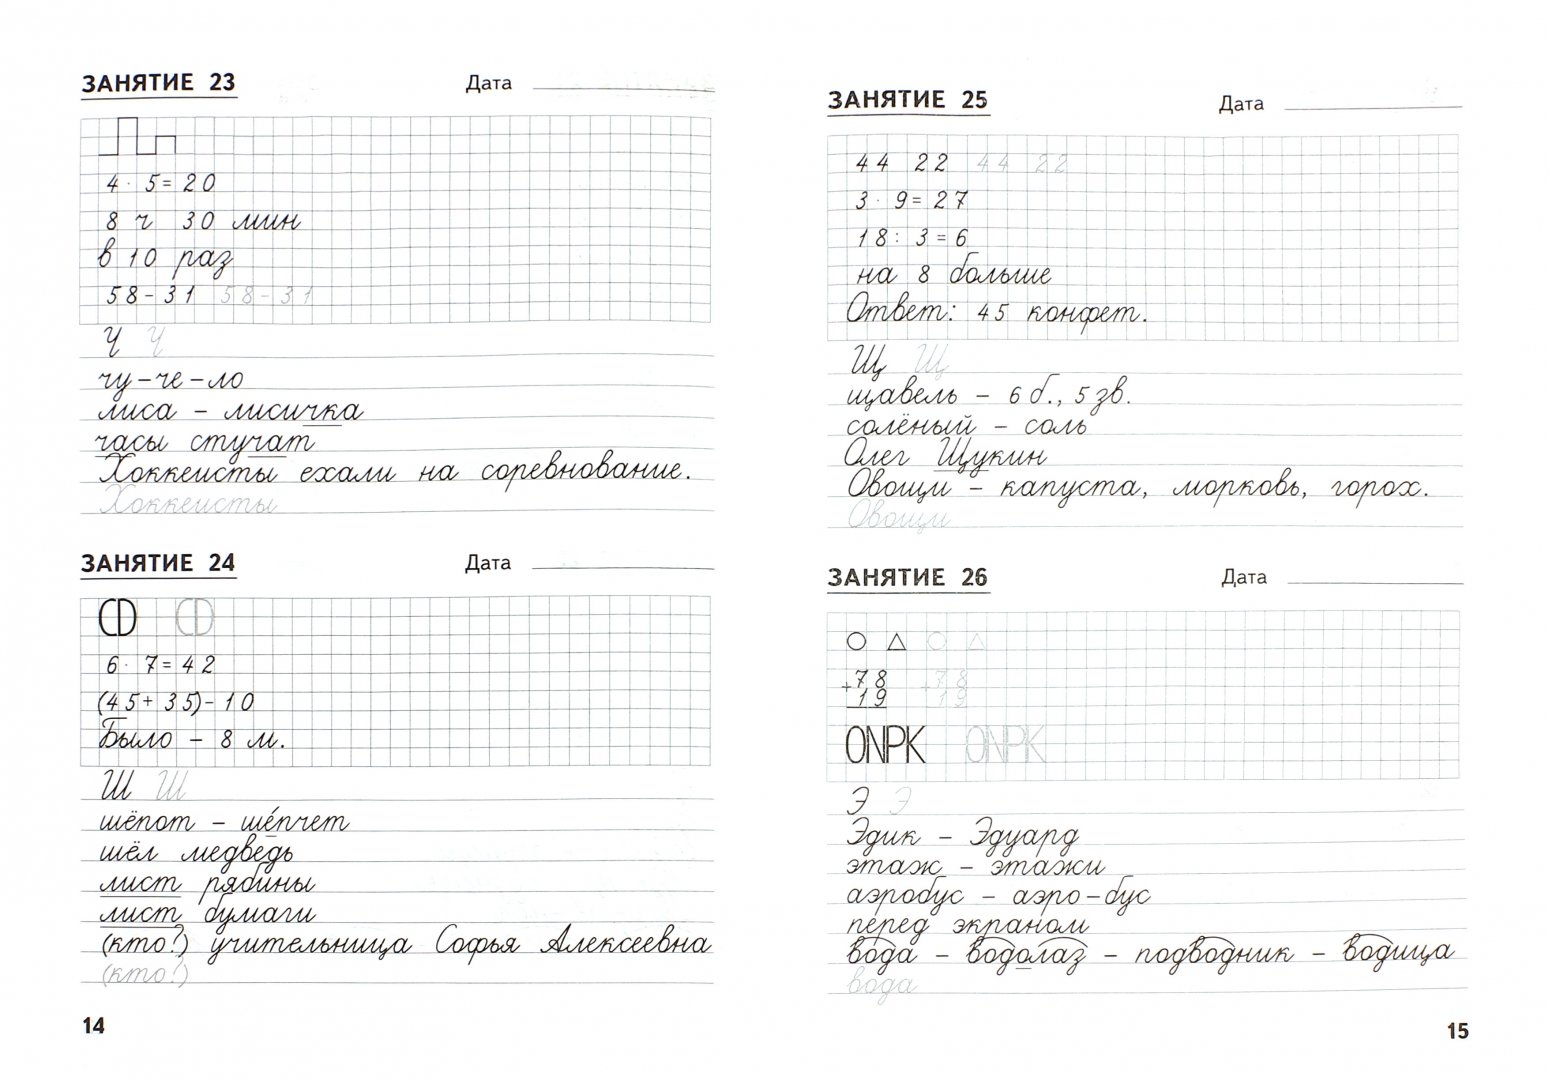 ЗАНЯТИЕ 23 Дата
4 · 5 = 20
8 ч 30 мин
в 10 раз
58 – 31 58 – 31
Ч Ч
чу – че – ло
лиса – лисичка
часы стучат
Хоккеисты ехали на соревнование.
Хоккеисты
ЗАНЯТИЕ 24 Дата
CD CD
6 · 7 = 42
(45 + 35) – 10
Было – 8 м.
Ш Ш
шёпот – шéпчет
шёл медведь
лист рябины
лист бумаги
(кто?) учительница Софья Алексеевна
(кто?)
14
ЗАНЯТИЕ 25 Дата
44 22 44 22
3 · 9 = 27
18 : 3 = 6
на 8 больше
Ответ: 45 конфет.
Щ Щ
щавель – 6 б., 5 зв.
солёный – соль
Олег Щукин
Овощи – капуста, морковь, горох.
Овощи
ЗАНЯТИЕ 26 Дата
+ 78 + 78
19 19
ONPK ONPK
Э Э
Эдик – Эдуард
этаж – этажи
аэробус – аэро – бус
перед экраном
вода – водолаз – подводник – водица
вода
15